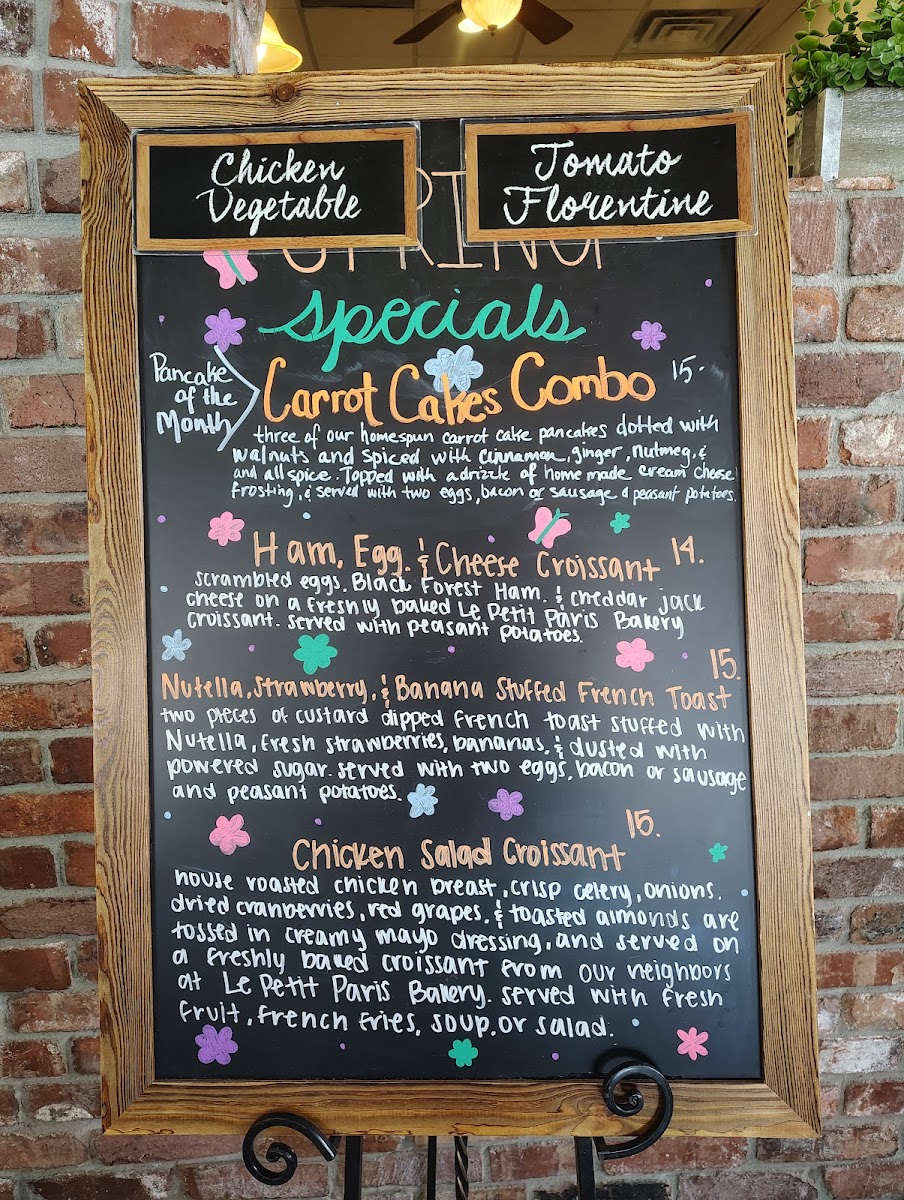 Chicken
Vegetable
Tomato
Florentine
SPRING
Specials
Pancake
of the
Month
Carrot Cakes Combo 15.
three of our homespun carrot cake pancakes dotted with
walnuts and spiced with cinnamon, ginger, nutmeg, &
and all spice. Topped with a drizzle of home made cream cheese
frosting, & served with two eggs, bacon or sausage & peasant potatoes.
Ham, Egg. & Cheese Croissant 14.
scrambled eggs, Black Forest Ham, & cheddar jack
cheese on a freshly baked Le Petit Paris Bakery
croissant. served with peasant potatoes.
15.
Nutella, Strawberry, & Banana Stuffed French Toast
two pieces of custard dipped french toast stuffed with
Nutella, fresh strawberries, bananas, & dusted with
powered sugar. served with two eggs, bacon or sausage
and peasant potatoes.
15.
Chicken Salad Croissant
house roasted chicken breast, crisp celery, onions,
dried cranberries, red grapes, & toasted almonds are
tossed in creamy mayo dressing, and served on
a freshly baked croissant from our neighbors
at Le Petit Paris Bakery. served with fresh
fruit, french fries, soup, or salad.